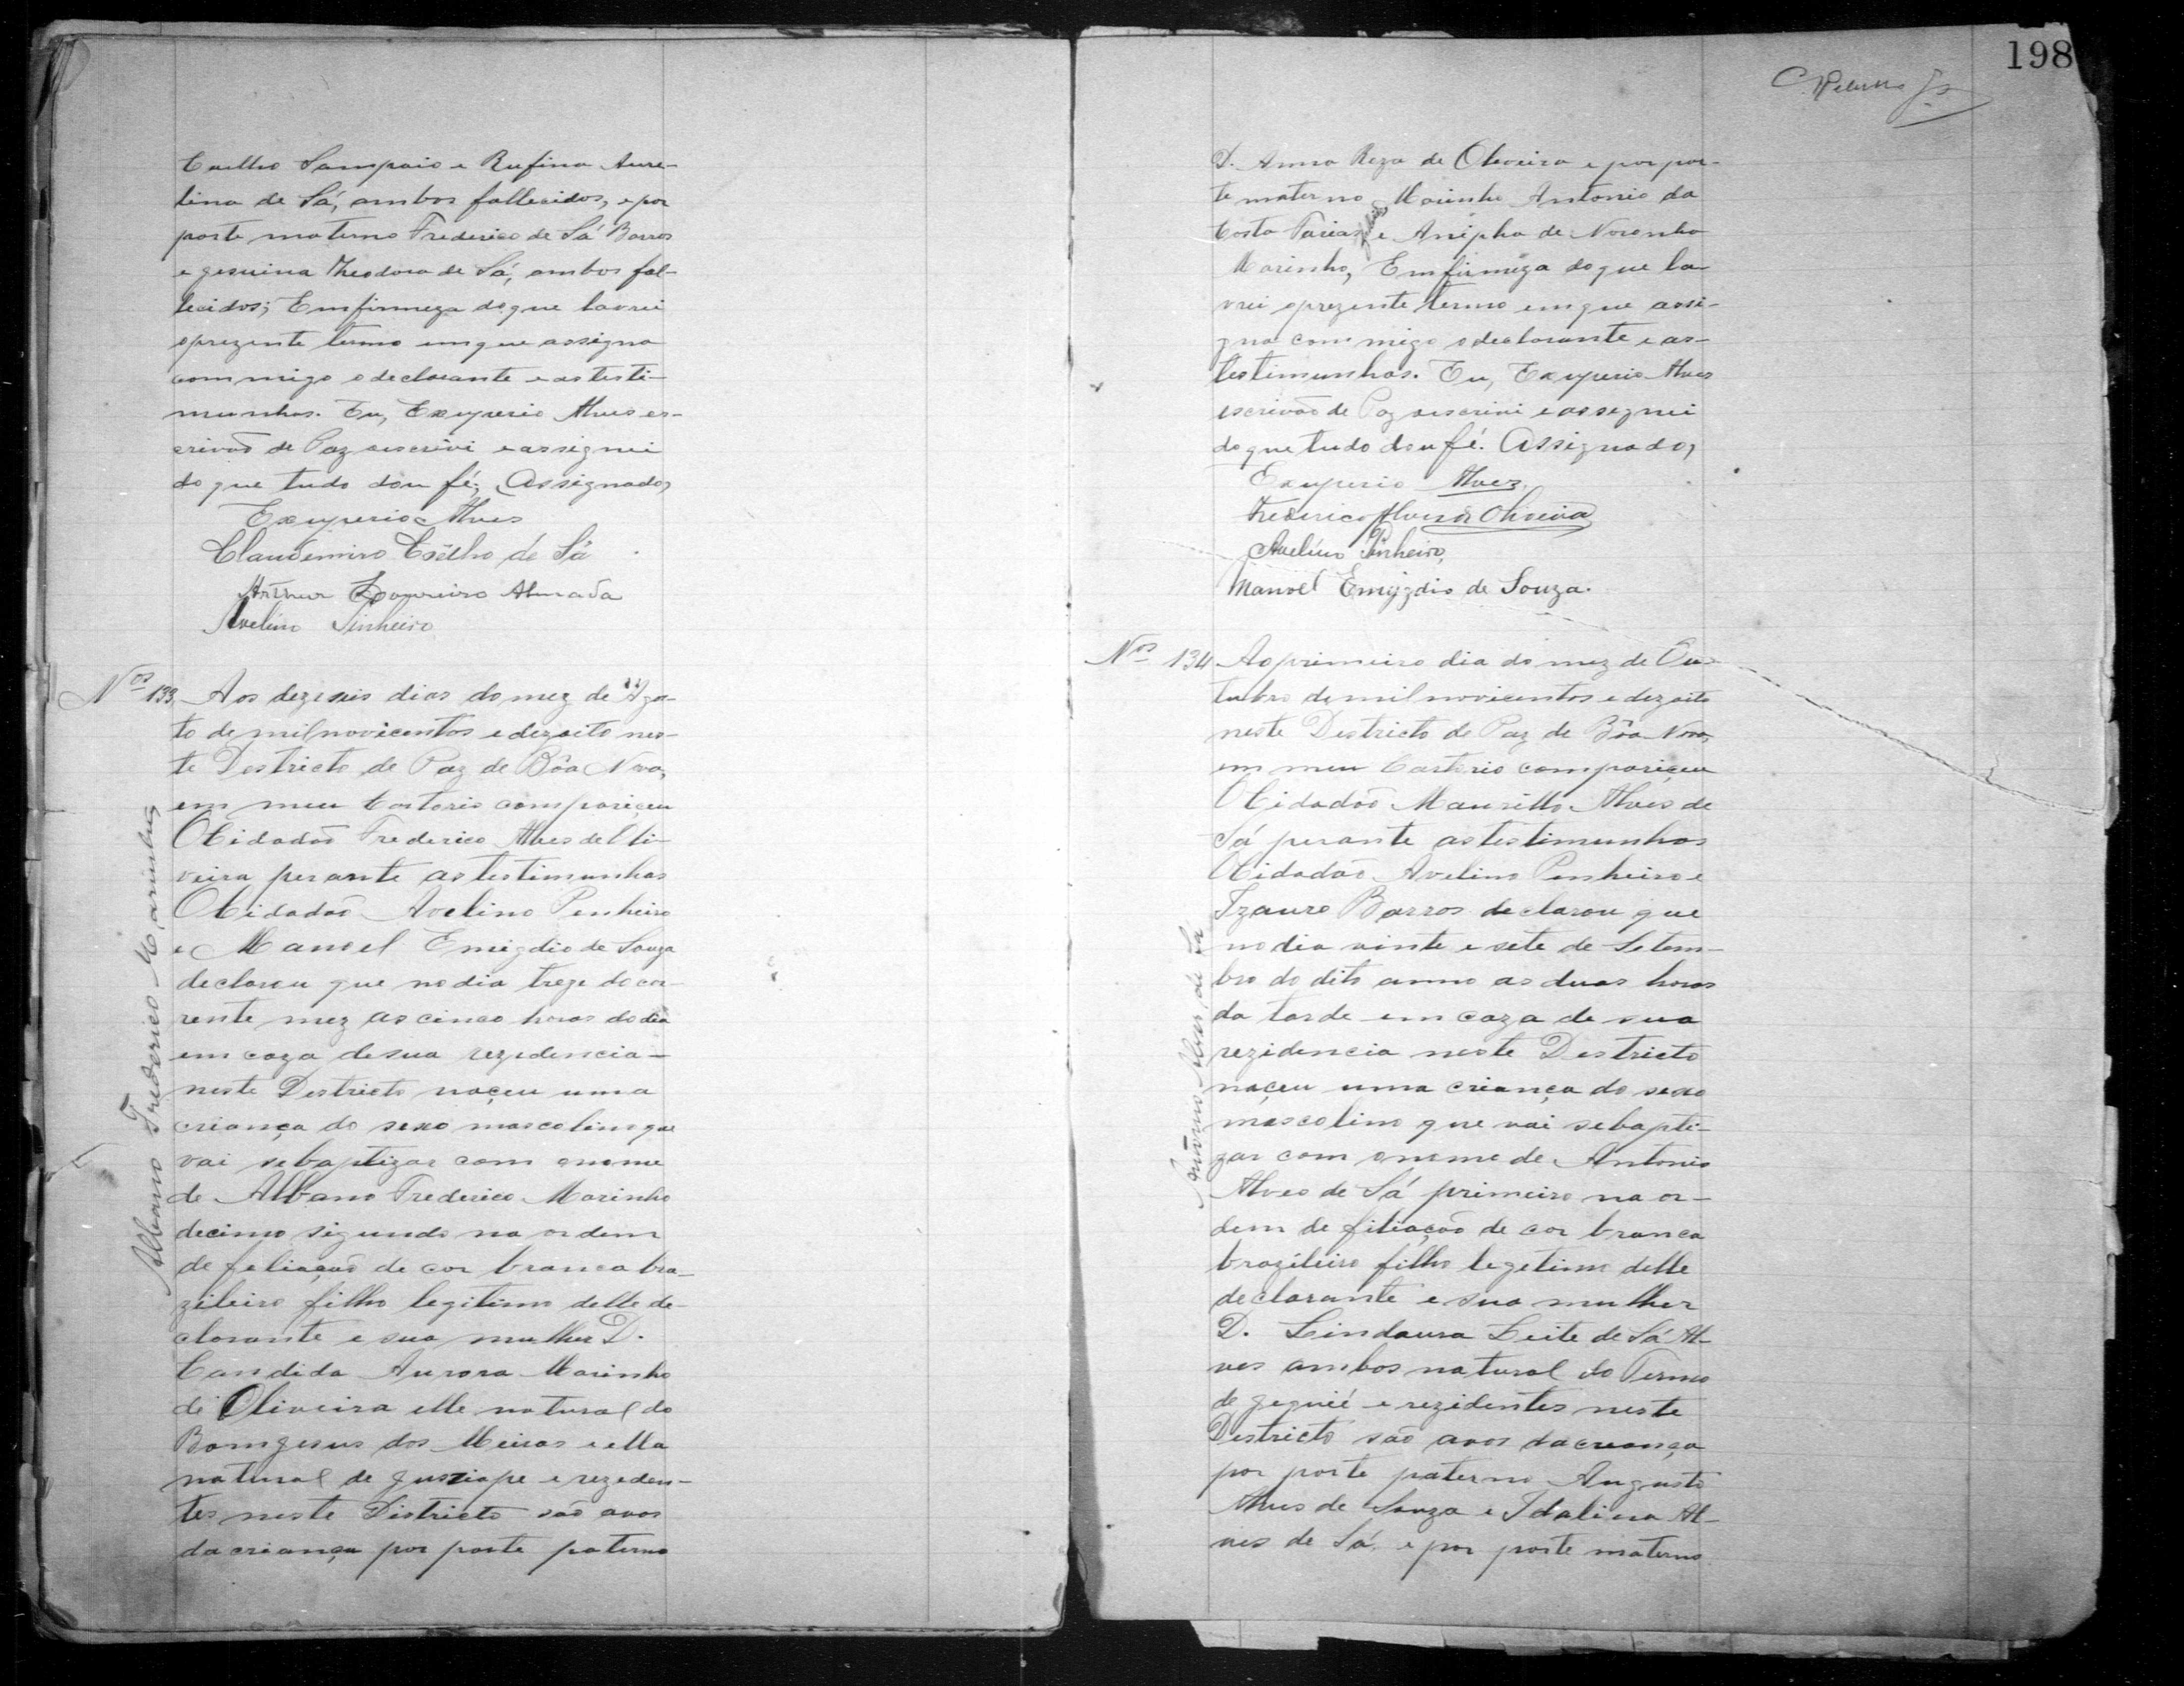 Coelho Sampaio e Rufina Aure-
lina de Sá, ambos fallecidos, e por
parte materno Frederico de Sá Barros
e gesuina Theodora de Sá, ambos fal-
lecidos; Emfirmeza doque lavrei
oprezente termo emque assigna
commigo o declarante e as testi-
munhas. Eu, Exuperio Alves es-
crivaõ de Paz sescrivi e assignei
do que tudo dou fé; Assignado,
Exuperio Alves
Claudemiro Coêlho de Sá
Arthur Loureiro Almada
Avelino Pinheiro
Nos 133 Aos dezeseis dias do mez de Ago-
to de milnovicentos e dezoito nes-
te Destricto de Paz de Bôa Nova,
em meu Cartorio compariçeu
O Cidadaõ Frederico Alves de Oli-
veira perante as testimunhas
O Cidadaõ Avelino Penheiro
e Manoel Emigdio de Souza
declarou que nodia treze do cor-
rente mez as cinco horas do dia
em caza desua rezedencia
neste Destricto naçeu uma
criança do sexo mascolino que
vai sebaptizar com onome
de Albano Frederico Marinho
decimo sigundo na ordem
de feliaçaõ de cor branca bra-
zileiro filho legitimo delle de-
clarante e sua mulher D.
Candida Aurora Marinho
de Oliveira elle natural do
Bomgesus dos Meiras e ella
natural de Jussiape e rezeden-
tes neste Districto saõ avos
da criança por parte paterno
Albano Frederico Marinho
198
D. Anna Roza de Oliveira e por par-
te materno Marinho Antonio da
Costa Farias e Anipha de Noronha
Marinho, Emfirmeza doque la-
vrei oprezente termo emque assi-
gna commigo o declarante e as
testimunhas. Eu, Exuperio Alves
escrivaõ de Paz sescrivi e assignei
doque tudo dou fé. Assignado,
Exuperio Alvez.
Frederico Alves de Oliveira
Avelino Pinheiro,
Manoel Emygdio de Souza.
Nos 134 Ao primeiro dia do mez de Ou-
tubro de mil novicentos e dezoito
neste Destricto de Paz de Bôa Nova,
em meu Cartorio compariçeu
O Cidadaõ Maurillo Alves de
Sá perante as testimunhas
O Cidadaõ Avelino Penheiro e
Izauro Barros declarou que
no dia vinte e sete de Setem-
bro do dito anno as duas horas
da tarde em caza de sua
rezidencia neste Destricto
naçeu uma criança do sexo
mascolino que vai sebapti-
zar com onome de Antonio
Alves de Sá primeiro na or-
dem de filiaçaõ de cor branca
brazileiro filho legetimo delle
declarante e sua mulher
D. Lindaura Leite de Sá Al-
ves ambos natural do Termo
de Jequié e rezidentes neste
Destricto saõ avos dacreança
por parte paterno Augusto
Alves de Souza e Idalina Al-
ves de Sá, e por parte materno
Antonio Alves de Sá